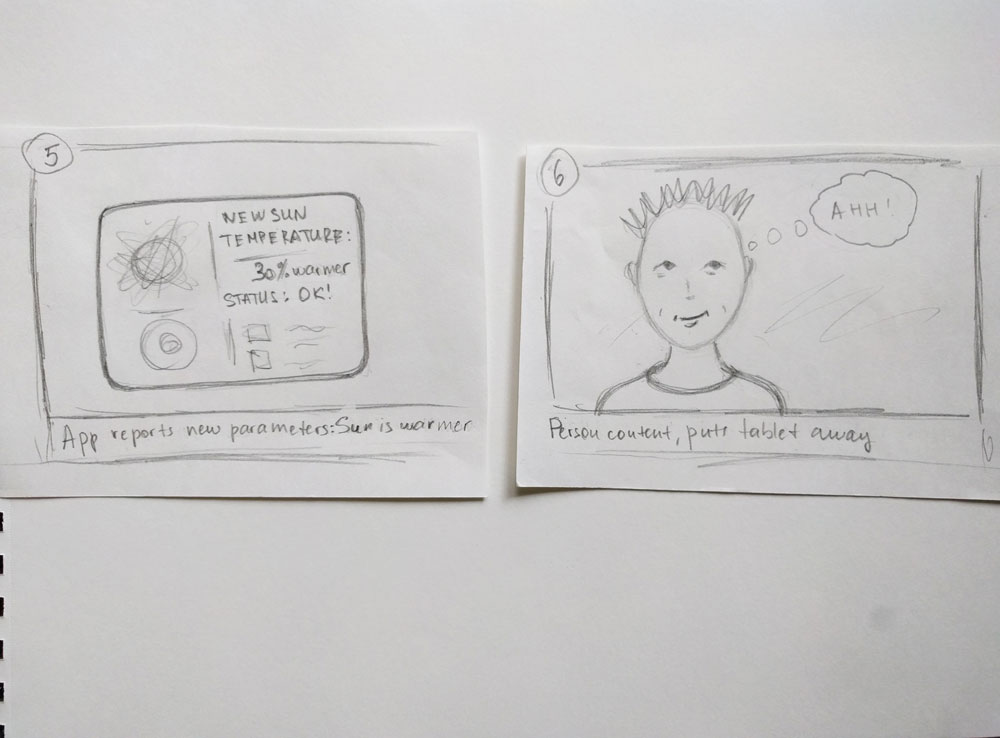 5
NEW SUN
TEMPERATURE:
30% warmer
STATUS: OK!
App reports new parameters: Sun is warmer
6
AHH!
Person content, puts tablet away